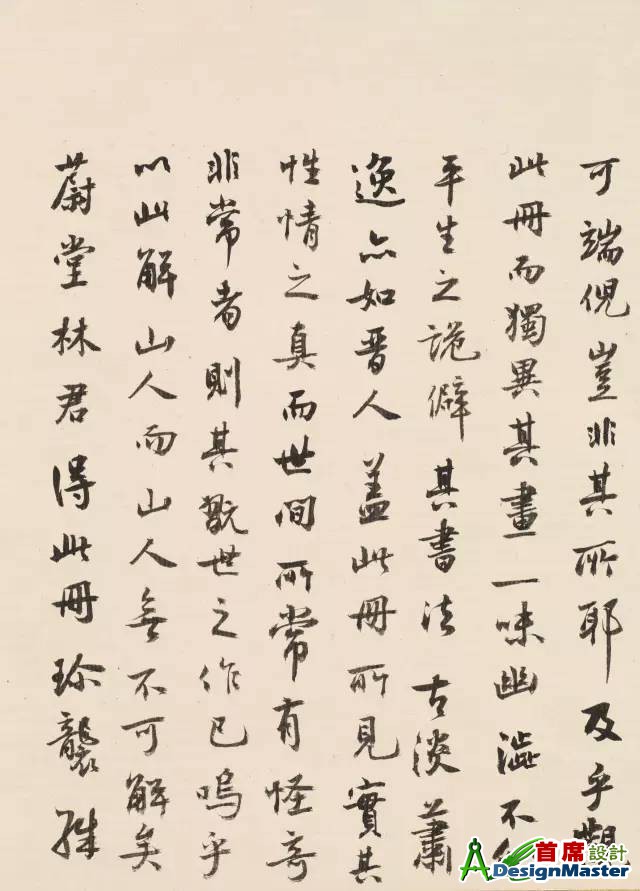 可端倪豈非其所耶及乎觀
此冊而獨異其畫一味幽澁不
平生之詭僻其書法古淡蕭
逸亦如晋人蓋此冊所見實其
性情之真而世間所常有怪奇
非常者則其翫世之作已嗚乎
以此解山人而山人無不可解矣
蔚堂林君得此冊珍襲殊
首席設計
ADesignMaster